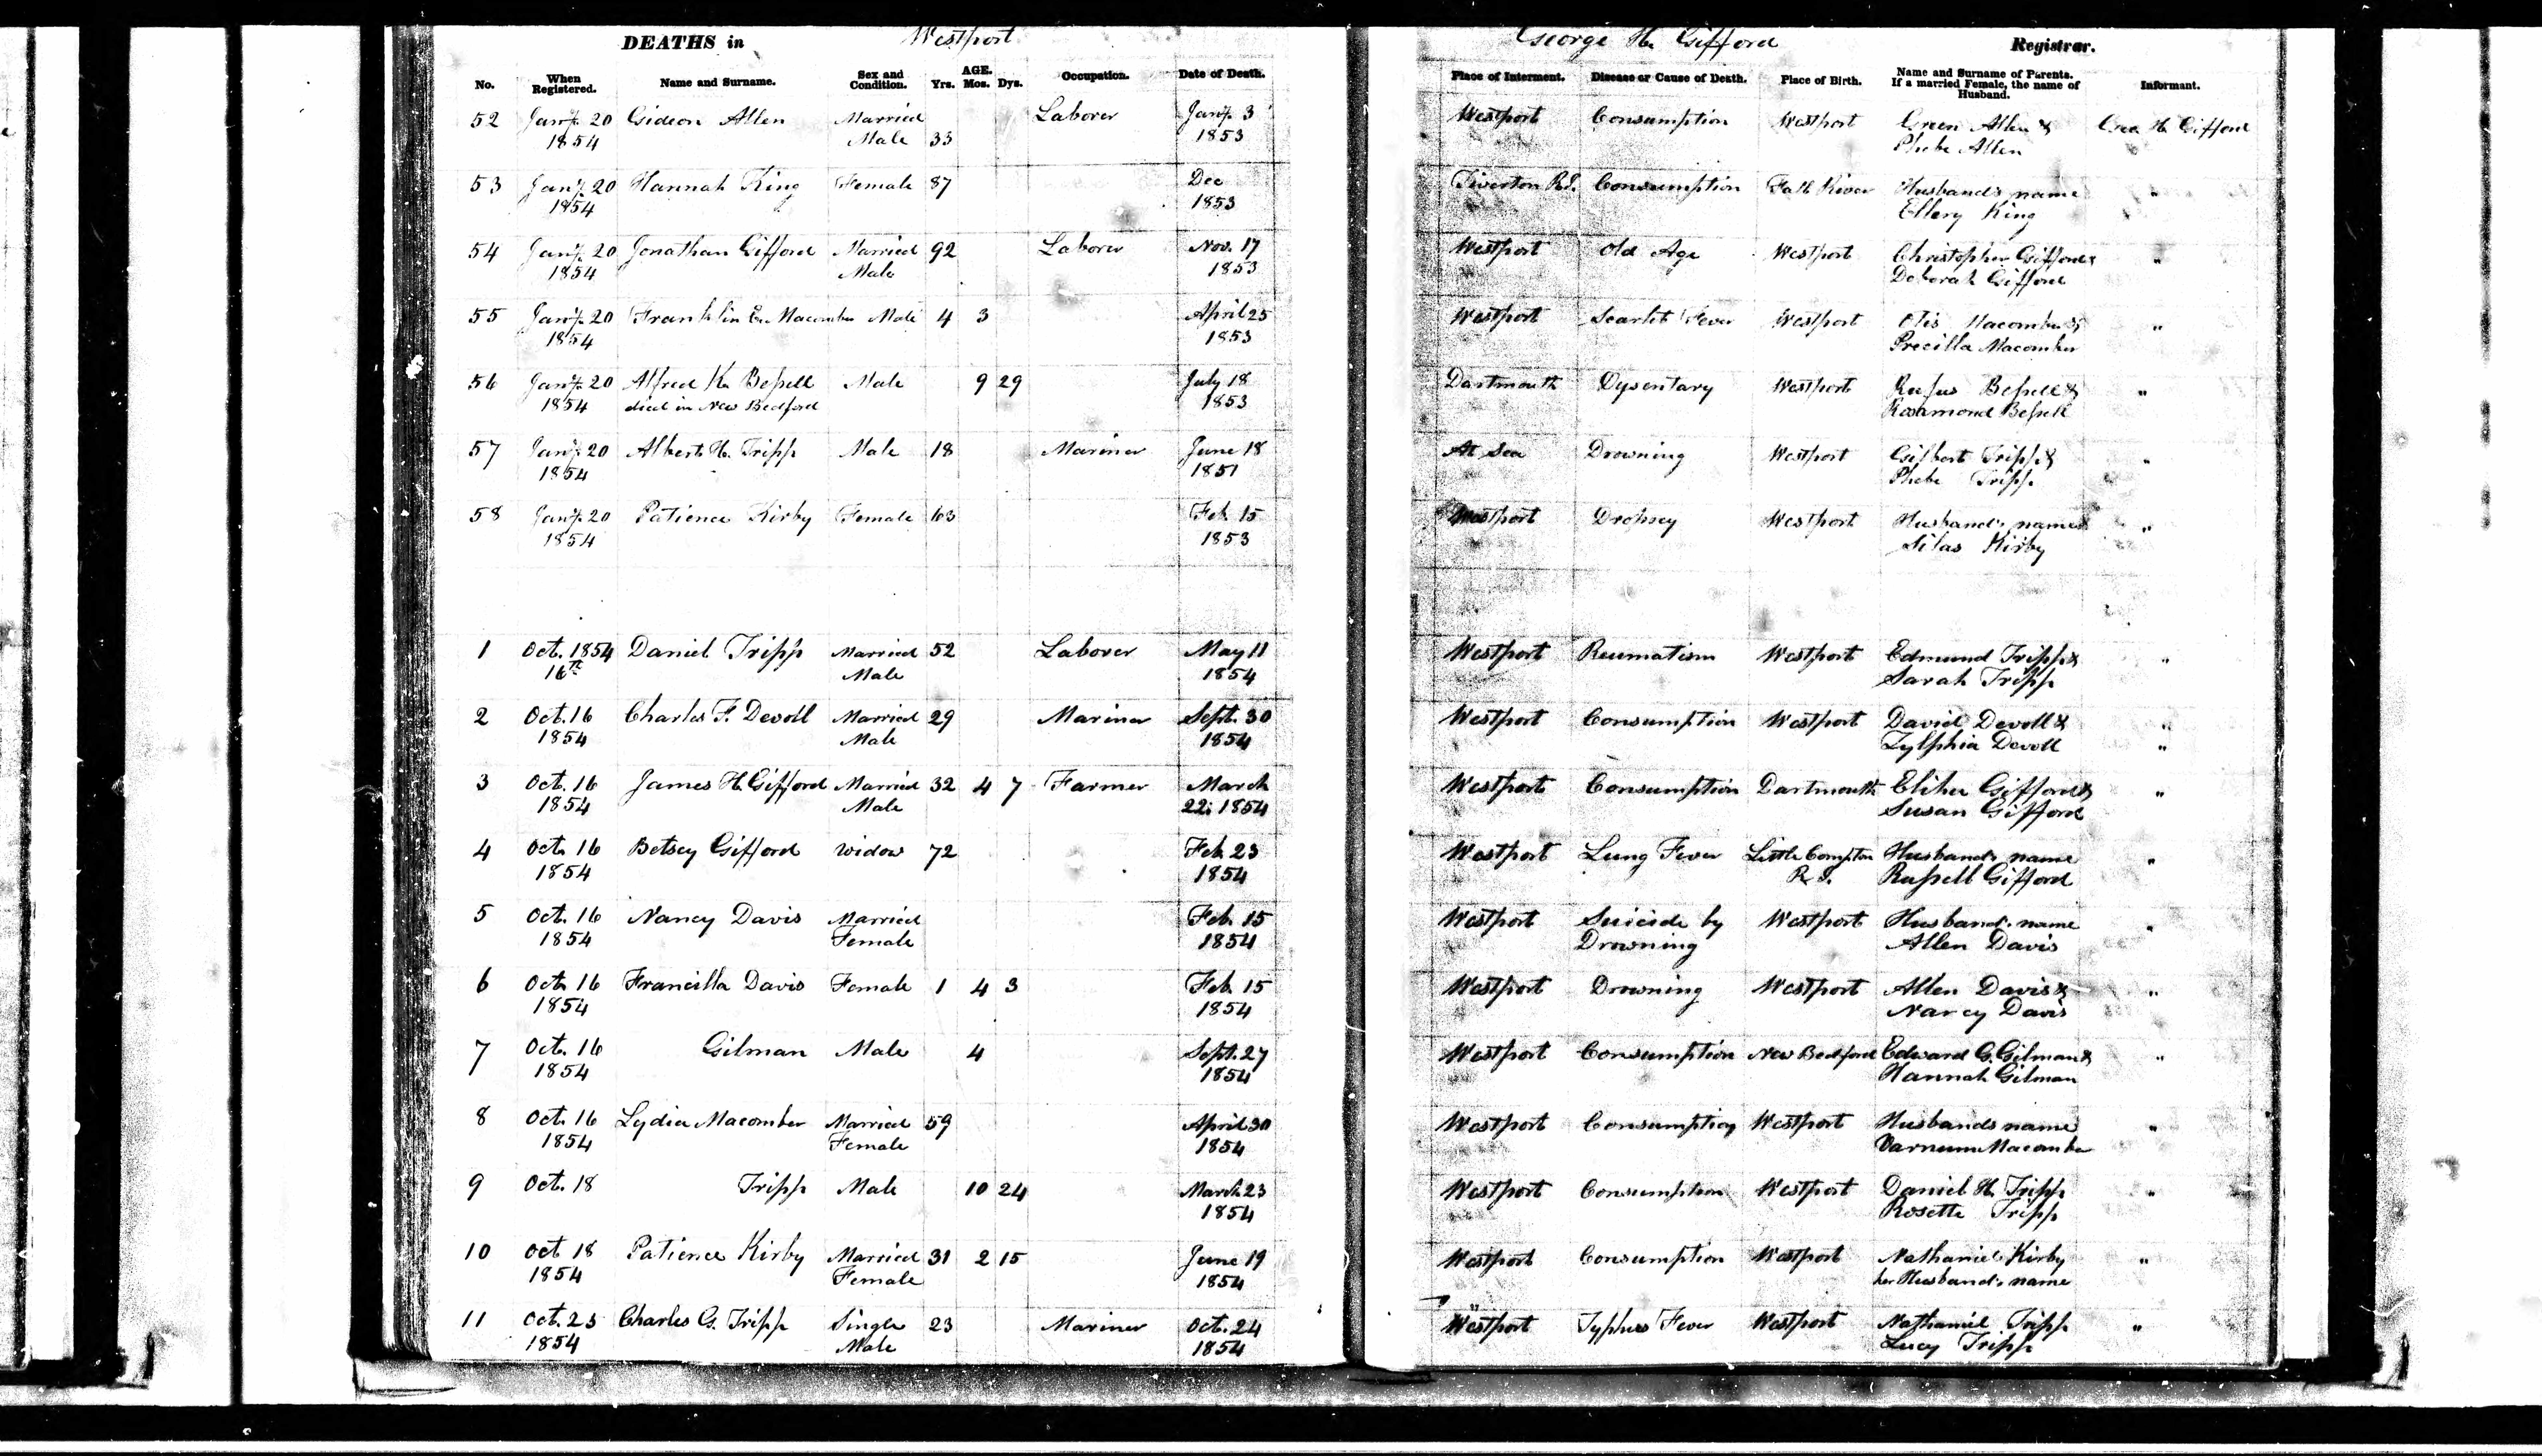 DEATHS in Westport George H. Gifford Registrar.
No. When Registered. Name and Surname. Sex and Condition. AGE. Yrs. Mos. Dys. Occupation. Date of Death. Place of Interment. Disease or Cause of Death. Place of Birth. Name and Surname of Parents. If a married Female, the name of Husband. Informant.
52 Jany. 20 Gideon Allen Married Laborer Jany. 3 Westport Consumption Westport Green Allen & Geo. H. Gifford
1854 Male 33 1853 Phebe Allen
53 Jany. 20 Hannah King Female 87 Dec Tiverton R.I. Consumption Fall River Husbands name "
1854 1853 Ellery King
54 Jany. 20 Jonathan Gifford Married 92 Laborer Nov. 17 Westport Old Age Westport Christopher Gifford & "
1854 Male 1853 Deborah Gifford
55 Jany. 20 Franklin E. Macomber Male 4 3 April 25 Westport Scarlet Fever Westport Otis Macomber & "
1854 1853 Precilla Macomber
56 Jany. 20 Alfred K. Bessell Male 9 29 July 18 Dartmouth Dysentary Westport Rufus Bessell & "
1854 died in New Bedford 1853 Rosamond Bessell
57 Jany. 20 Albert H. Tripp Male 18 Mariner June 18 At Sea Drowning Westport Gilbert Tripp & "
1854 1851 Phebe Tripp
58 Jany. 20 Patience Kirby Female 63 Feb. 15 Westport Dropsey Westport Husband's name "
1854 1853 Silas Kirby
1 Oct. 1854 Daniel Tripp Married 52 Laborer May 11 Westport Reumatism Westport Edmund Tripp & "
16th Male 1854 Sarah Tripp
2 Oct. 16 Charles F. Devoll Married 29 Mariner Sept. 30 Westport Consumption Westport David Devoll & "
1854 Male 1854 Zylphia Devoll "
3 Oct. 16 James H. Gifford Married 32 4 7 Farmer March Westport Consumption Dartmouth Elihu Gifford & "
1854 Male 22: 1854 Susan Gifford
4 Oct. 16 Betsey Gifford Widow 72 Feb. 23 Westport Lung Fever Little Compton Husband's name "
1854 1854 R. I. Russell Gifford
5 Oct. 16 Nancy Davis Married Feb. 15 Westport Suicide by Westport Husband's name "
1854 Female 1854 Drowning Allen Davis
6 Oct. 16 Francilla Davis Female 1 4 3 Feb. 15 Westport Drowning Westport Allen Davis & "
1854 1854 Nancy Davis
7 Oct. 16 Gilman Male 4 Sept. 27 Westport Consumption New Bedford Edward G. Gilman & "
1854 1854 Hannah Gilman
8 Oct. 16 Lydia Macomber Married 59 April 30 Westport Consumption Westport Husbands name "
1854 Female 1854 Varnum Macomber
9 Oct. 18 Tripp Male 10 24 March 23 Westport Consumption Westport Daniel H. Tripp "
1854 Rosetta Tripp
10 Oct 18 Patience Kirby Married 31 2 15 June 19 Westport Consumption Westport Nathaniel Kirby "
1854 Female 1854 her Husband's name
11 Oct. 25 Charles G. Tripp Single 23 Mariner Oct. 24 Westport Typhus Fever Westport Nathaniel Tripp "
1854 Male 1854 Lucy Tripp